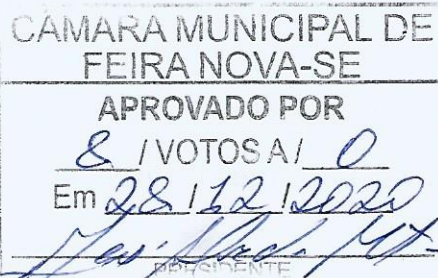 CÂMARA MUNICIPAL DE
FEIRA NOVA-SE
APROVADO POR
8 / VOTOS A / 0
Em 28 / 12 / 2020
PRESIDENTE